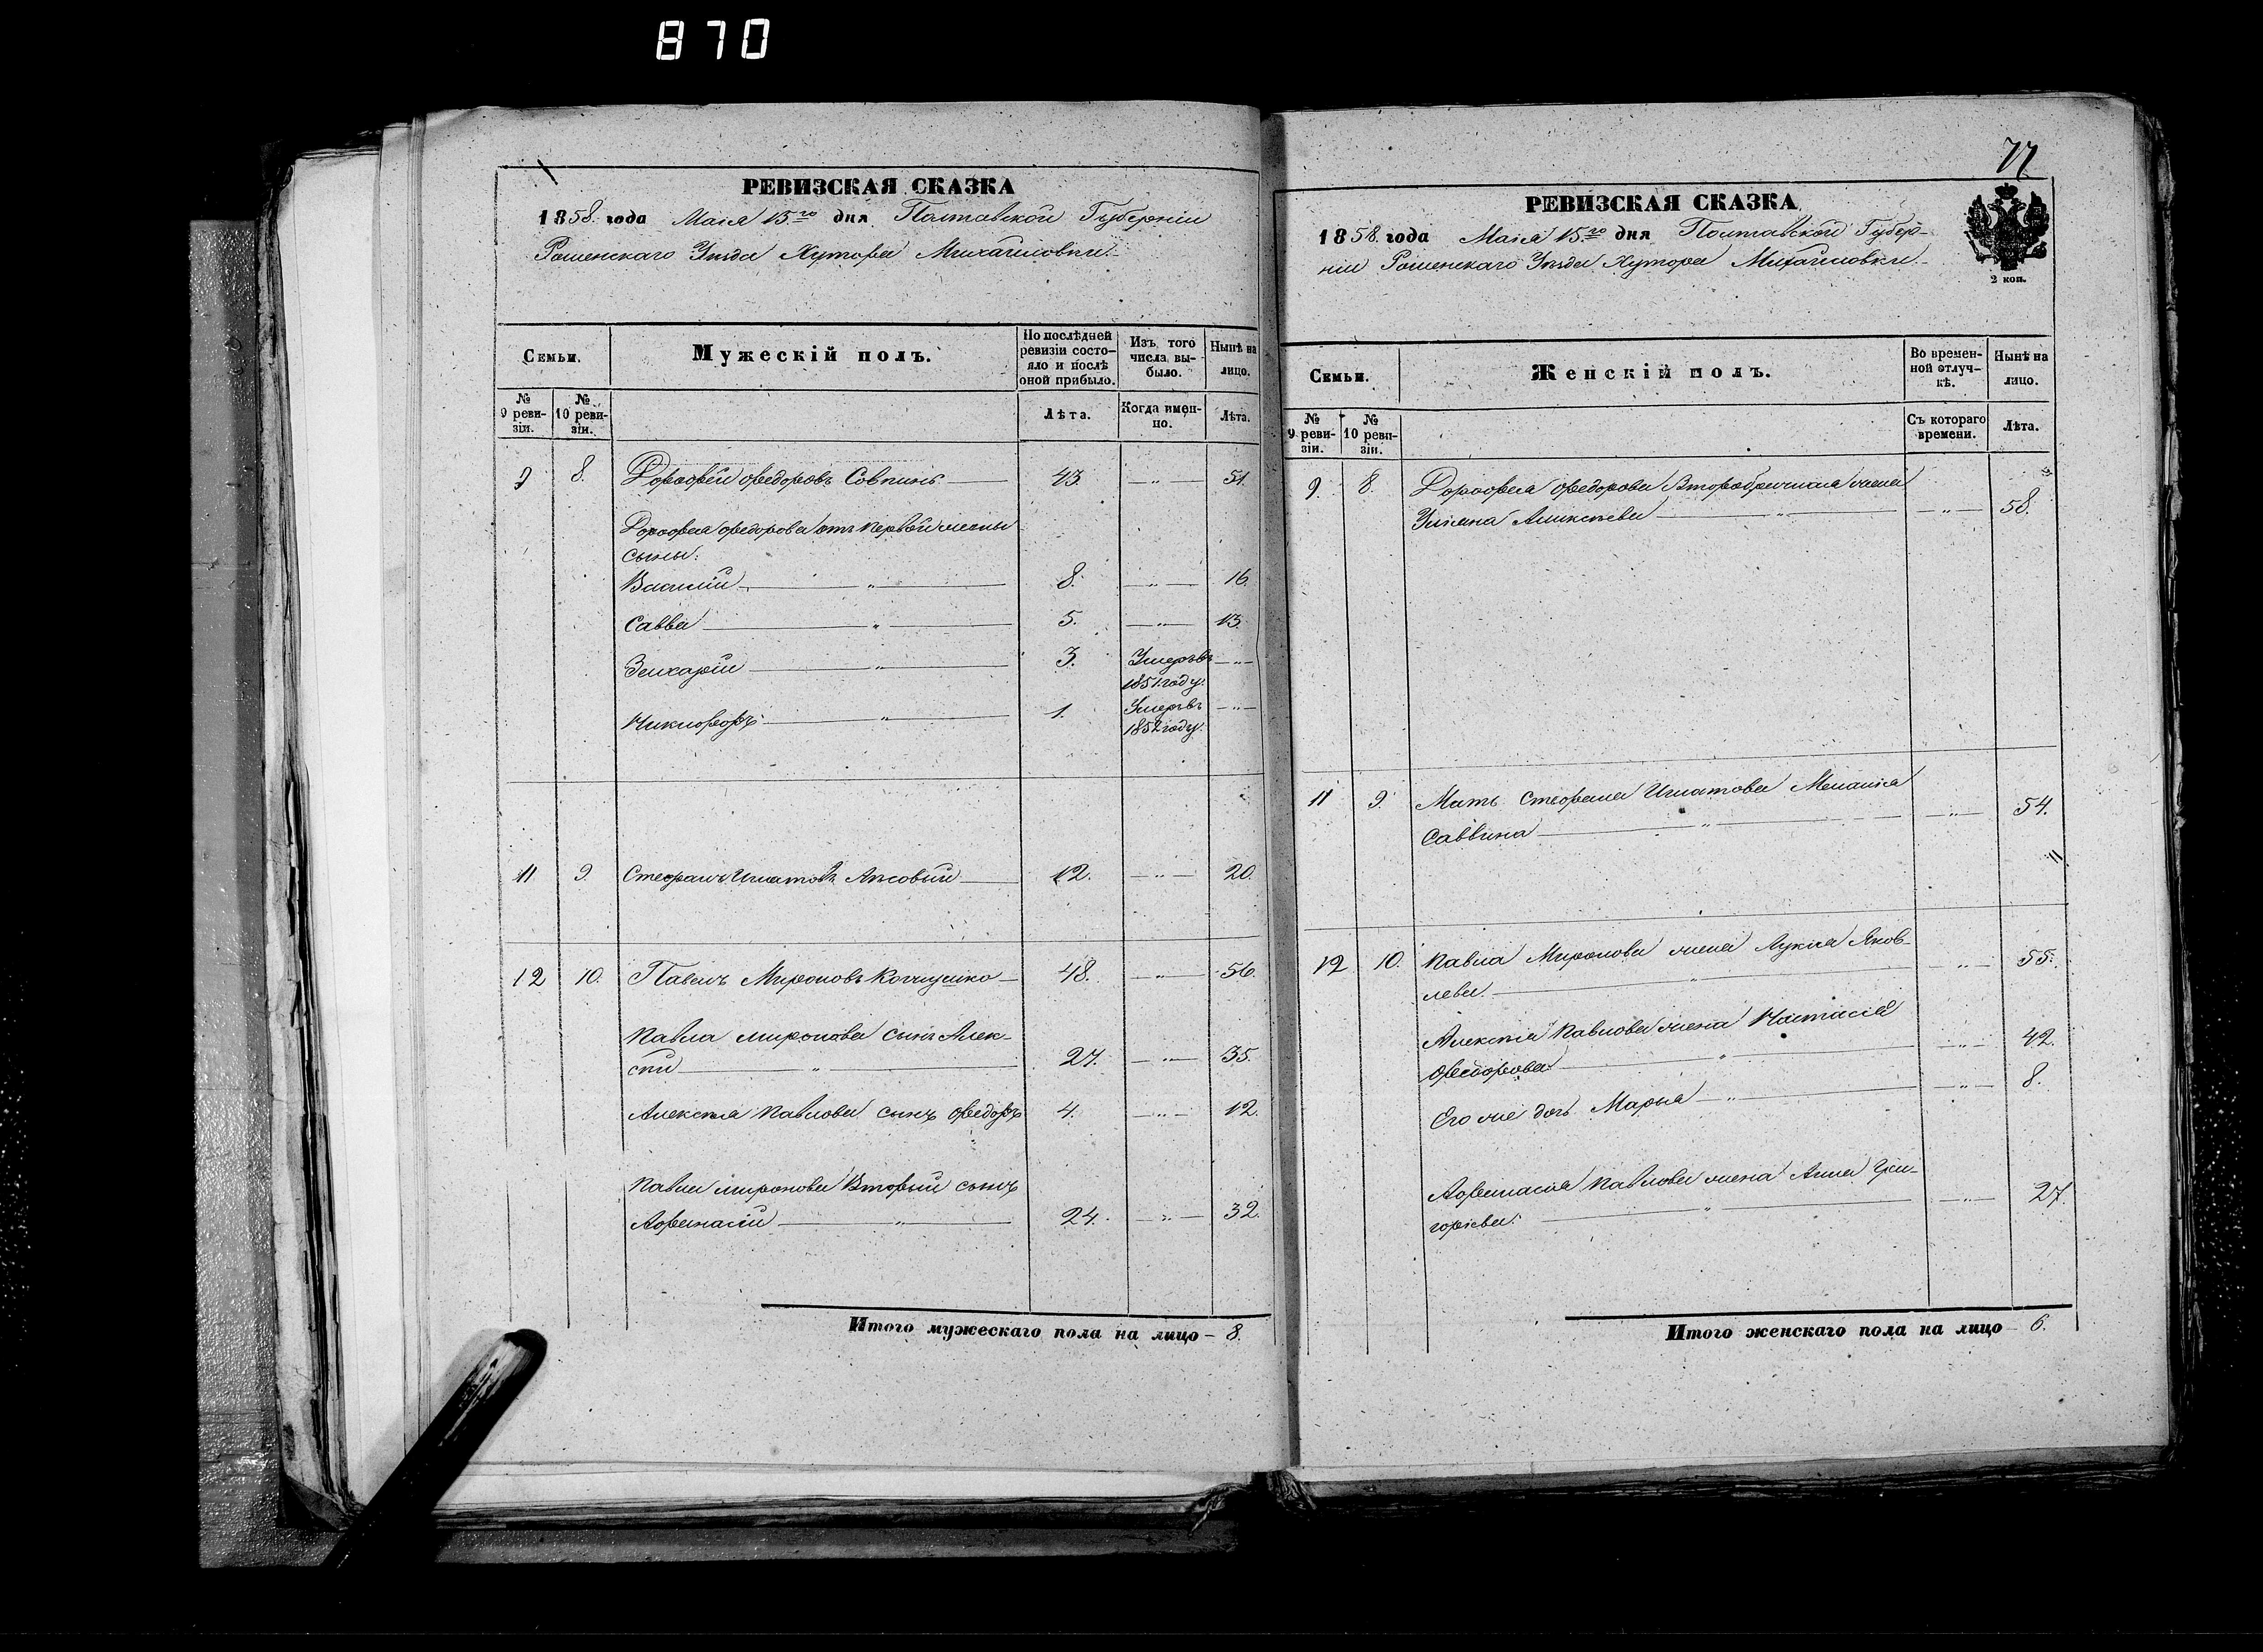 870
РЕВИЗСКАЯ СКАЗКА
1858. года Маія 15.го дня Полтавской Губерніи
Роменскаго Уѣзда Хутора Михайловки.
Семьи.
Мужескій полъ.
По послѣдней ревизіи состо-
яло и послѣ
оной прибыло.
Изъ того
числа вы-
было.
Нынѣ на
лицо.
№
9 реви-
зіи.
№
10 реви-
зіи.
Лѣта.
Когда имен-
но.
Лѣта.
9 8. Дорофей Федоровъ 43 — „ — 51.
Дорофея Федорова отъ первой жены
сыны:
Василій — „ — 8. — „ — 16.
Савва — „ — 5. — „ — 13.
Захарій — „ — 3. Умеръ въ — „ —
1851. году.
Никифоръ — „ — 1. Умеръ въ — „ —
1852 году.
11 9. Стефанъ Игнатовъ 12. — „ — 20.
12 10. Павелъ Мироновъ — 48. — „ — 56.
Павла Миронова сынъ Алек-
сѣй — „ — 27. — „ — 35.
Алексѣя Павлова сынъ Федоръ 4. — „ — 12.
Павла Миронова Вторый сынъ
Афанасій — „ — 24. — „ — 32.
Итого мужескаго пола на лицо — 8.
77
РЕВИЗСКАЯ СКАЗКА
1858. года Маія 15.го дня Полтавской Губер-
ніи Роменскаго Уѣзда Хутора Михайловки.
2 коп.
Семьи.
Женскій полъ.
Во времен-
ной отлуч-
кѣ.
Нынѣ на
лицо.
№
9 реви-
зіи.
№
10 реви-
зіи.
Съ котораго
времени.
Лѣта.
9. 8. Дорофея Федорова Второбрачная жена
Уліяна Алексѣева — „ — — „ — 58.
11 9. Мать Стефана Игнатова Меланія
Саввина — „ — — „ — 54.
12 10. Павла Миронова жена Лукія Яков-
лева. — „ — — „ — 55.
Алексѣя Павлова жена Настасія
Федорова — „ — — „ — 42.
Его же дочь Марья — „ — — „ — 8.
Афанасія Павлова жена Анна Гри-
горіева. — „ — — „ — 27.
Итого женскаго пола на лицо 6.